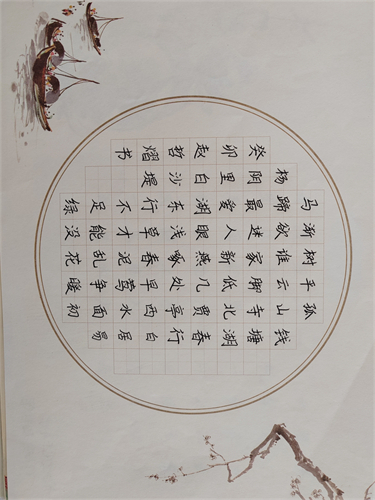 钱塘湖春行白居易
孤山寺北贾亭西水面初
平云脚低几处早莺争暖
树谁家新燕啄春泥乱花
渐欲迷人眼浅草才能没
马蹄最爱湖东行不足绿
杨阴里白沙堤
癸卯赵哲熠书